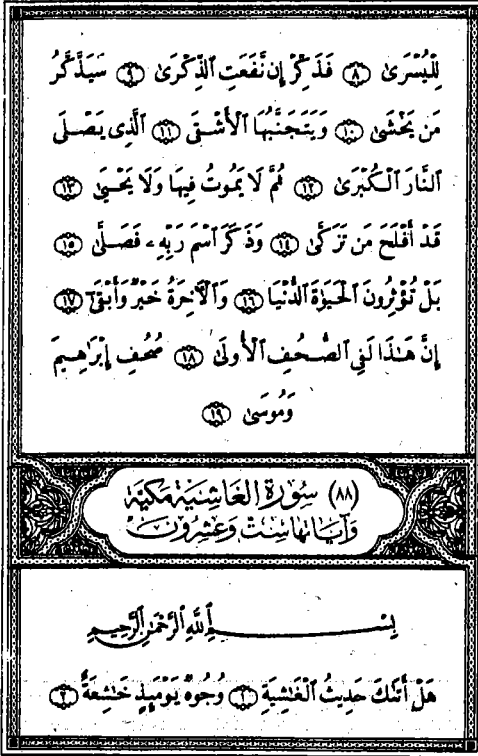 لِلْيُسْرَىٰ ٨ فَذَكِّرْ إِن نَّفَعَتِ ٱلذِّكْرَىٰ ٩ سَيَذَّكَّرُ
مَن يَخْشَىٰ ١٠ وَيَتَجَنَّبُهَا ٱلْأَشْقَى ١١ ٱلَّذِى يَصْلَى
ٱلنَّارَ ٱلْكُبْرَىٰ ١٢ ثُمَّ لَا يَمُوتُ فِيهَا وَلَا يَحْيَىٰ ١٣
قَدْ أَفْلَحَ مَن تَزَكَّىٰ ١٤ وَذَكَرَ ٱسْمَ رَبِّهِۦ فَصَلَّىٰ ١٥
بَلْ تُؤْثِرُونَ ٱلْحَيَوٰةَ ٱلدُّنْيَا ١٦ وَٱلْأَخِرَةُ خَيْرٌ وَأَبْقَىٰٓ ١٧
إِنَّ هَٰذَا لَفِى ٱلصُّحُفِ ٱلْأُولَىٰ ١٨ صُحُفِ إِبْرَٰهِيمَ
وَمُوسَىٰ ١٩
(٨٨) سُورَة الغَاشِيَة مَكيّة
وَآيَاتهَا سِتٌّ وَعِشْرُونَ
بِسْمِ ٱللَّهِ ٱلرَّحْمَٰنِ ٱلرَّحِيمِ
هَلْ أَتَىٰكَ حَدِيثُ ٱلْغَٰشِيَةِ ١ وُجُوهٌ يَوْمَئِذٍ خَٰشِعَةٌ ٢